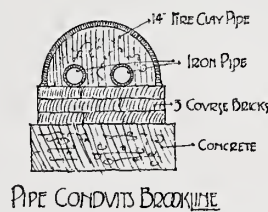 14" FIRE CLAY PIPE
IRON PIPE
3 COVRSE BRICKS
CONCRETE
PIPE CONDVITS BROOKLINE